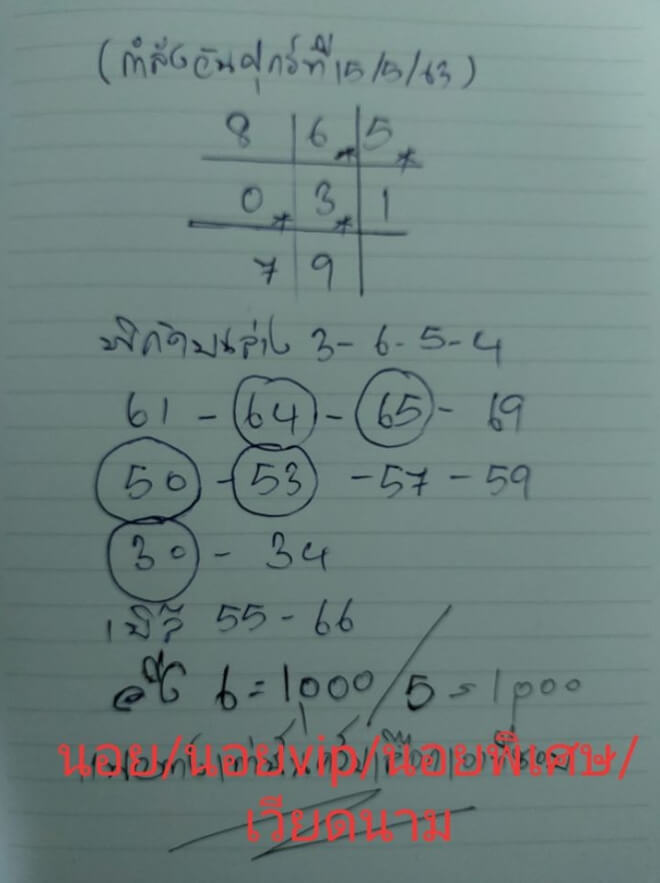 (กำลังวันศุกร์ที่ 15/5/63)
8 6 5
0 3 1
7 9
พิกัดบนล่าง 3-6-5-4
61 - 64 - 65 - 69
50 - 53 - 57 - 59
30 - 34
เบิ้ล 55 - 66
6 = 1,000 / 5 = 1,000
นอย/นอยvip/นอยพิเศษ/
เวียดนาม